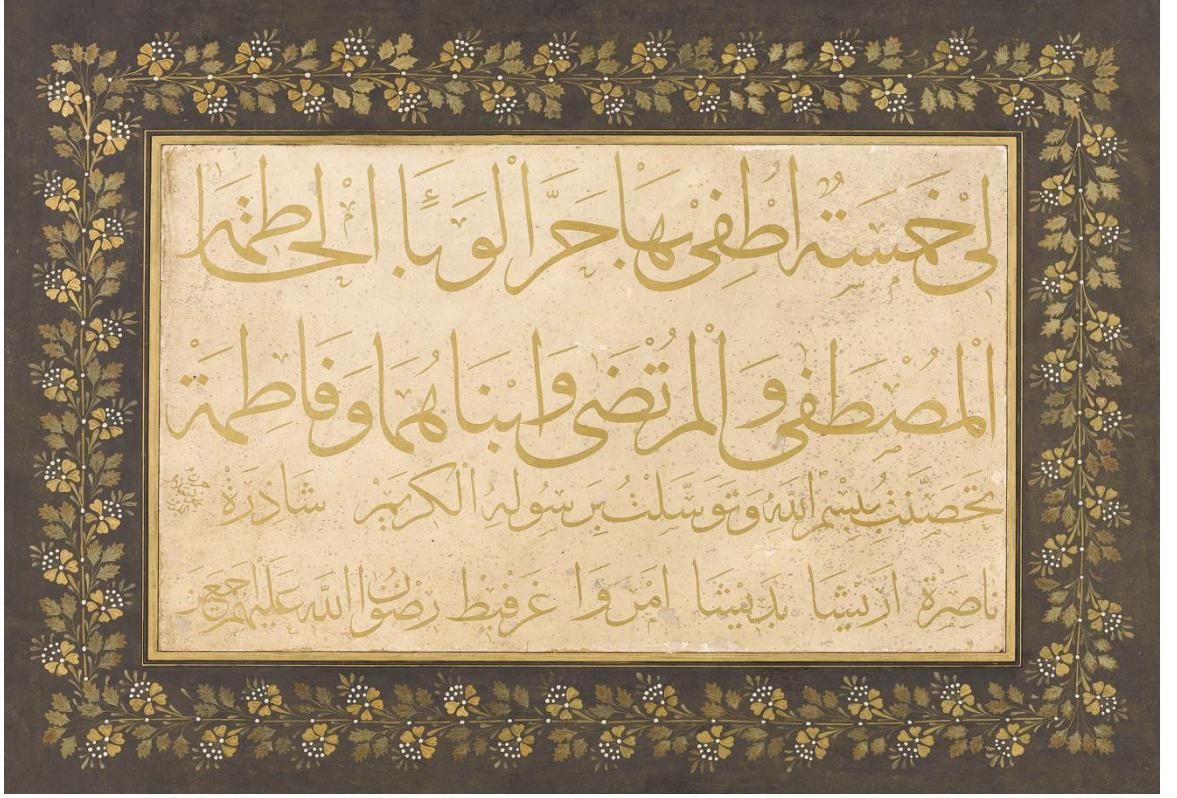 لِىْ خَمْسَةٌ اُطْفِىْ بِهَا حَرَّ الْوَبَاءِ الْحَاطِمَة
اَلْمُصْطَفٰى وَالْمُرْتَضٰى وَابْنَاهُمَا وَفَاطِمَة
تَحَصَّنْتُ بِبِسْمِ اللّٰهِ وَتَوَسَّلْتُ بِرَسُولِهِ الْكَرِيْمِ شاذرة
ناصرة اريشا بديشا امروا غرفيط رضوان اللّٰه عليهم اجمعين